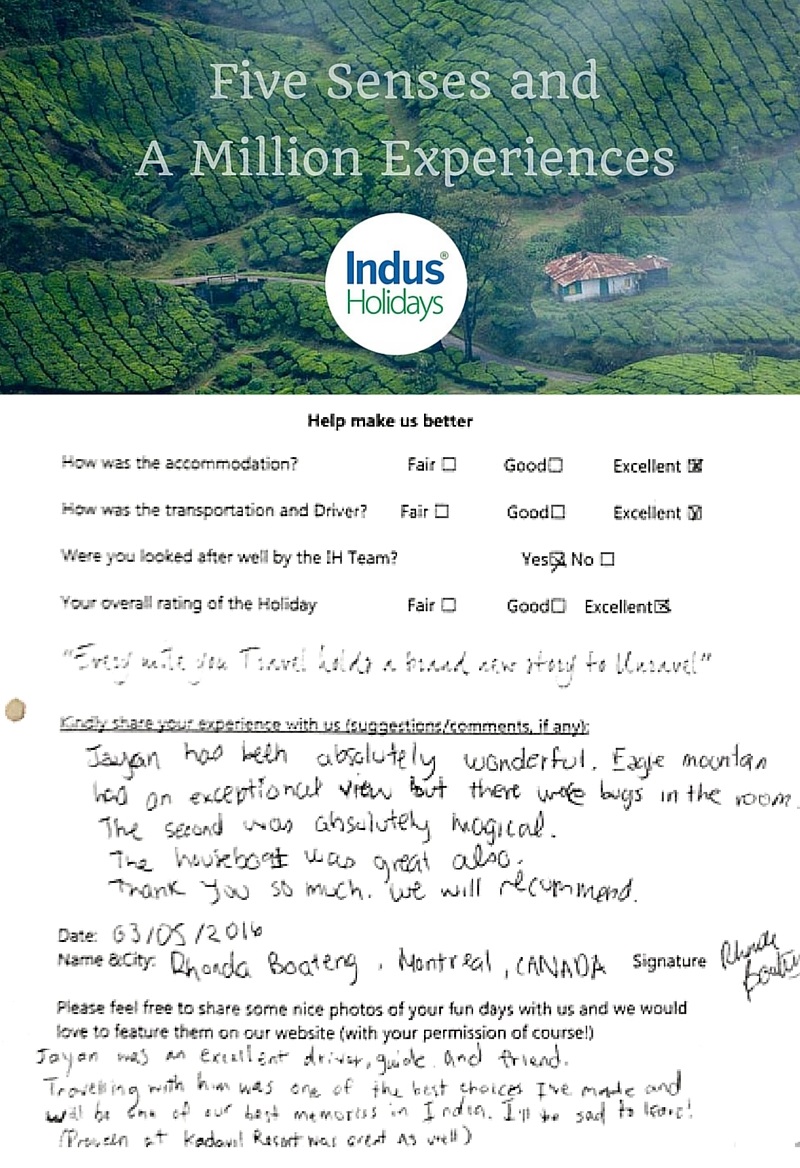 Five Senses and
A Million Experiences
Indus®
Holidays
Help make us better
How was the accommodation? Fair ☐ Good☐ Excellent ☒
How was the transportation and Driver? Fair ☐ Good☐ Excellent ☒
Were you looked after well by the IH Team? Yes☒ No ☐
Your overall rating of the Holiday Fair ☐ Good☐ Excellent☒
"Every mile you Travel holds a brand new story to Unravel"
Kindly share your experience with us (suggestions/comments, if any):
Jayan has been absolutely wonderful. Eagle mountain
had an exceptional view but there were bugs in the room.
The second was absolutely magical.
The houseboat was great also.
Thank you so much. We will recommend.
Date: 03/05/2016
Name &City: Rhonda Boateng, Montreal, CANADA Signature Rhonda
Boateng
Please feel free to share some nice photos of your fun days with us and we would
love to feature them on our website (with your permission of course!)
Jayan was an excellent driver, guide and friend.
Travelling with him was one of the best choices I've made and
will be one of our best memories in India. I'll be sad to leave!
(Praveen at Kadavil Resort was great as well)